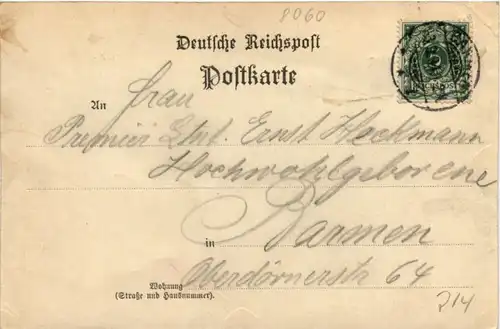 8060
Deutsche Reichspost
Postkarte
An Frau
Premier Ltnt. Ernst Heckmann
Hochwohlgeborene
in Barmen
Wohnung Oberdörnerstr 64
(Straße und Hausnummer).
214